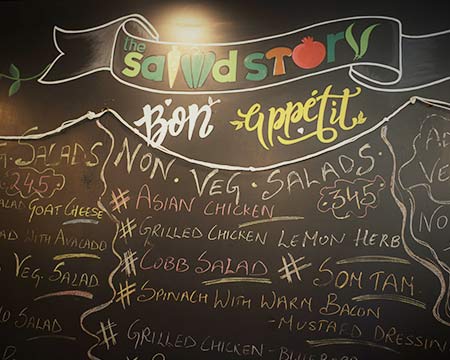 the
salad story
Bon appétit
VEG. SALADS
245
SALAD GOAT CHEESE
SALAD WITH AVACADO
VEG. SALAD
SALAD
NON. VEG. SALADS.
345
# ASIAN CHICKEN
# GRILLED CHICKEN LEMON HERB
# COBB SALAD # SOM TAM
# SPINACH WITH WARM BACON
- MUSTARD DRESSIN
# GRILLED CHICKEN - BLUEBERR
VE
NO